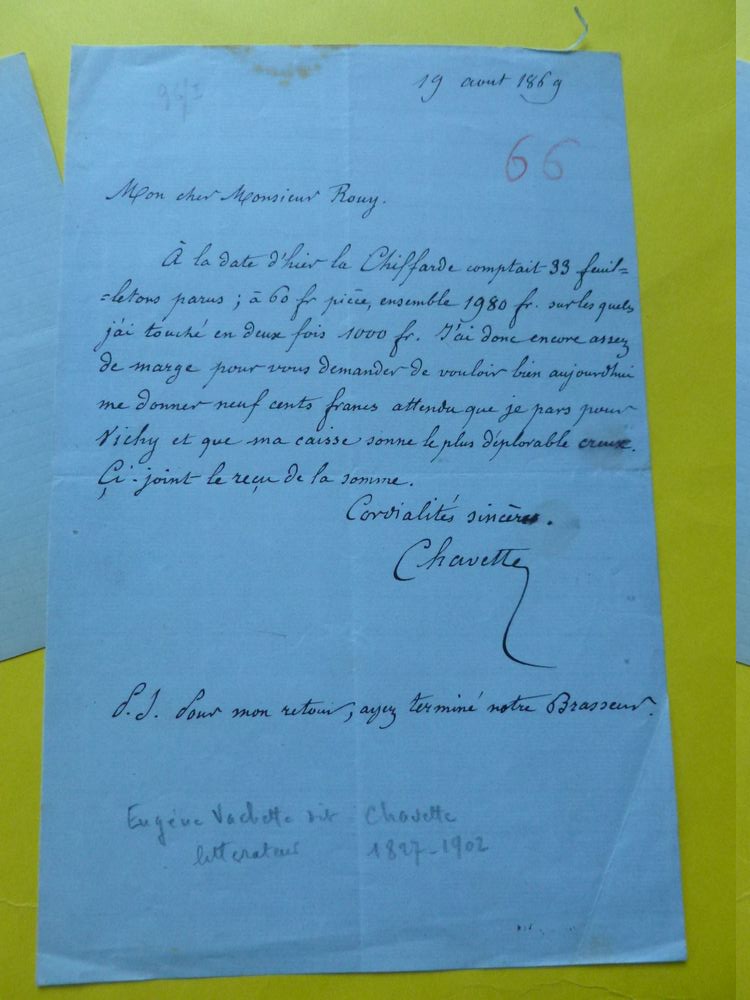 19 aout 1869
66
Mon cher Monsieur Rouy.
À la date d'hier la Chiffarde comptait 33 feuil=
=letons parus ; à 60 fr pièce, ensemble 1980 fr. sur les quels
j'ai touché en deux fois 1000 fr. J'ai donc encore assez
de marge pour vous demander de vouloir bien aujourd'hui
me donner neuf cents francs attendu que je pars pour
Vichy et que ma caisse sonne le plus déplorable creux.
Çi-joint le reçu de la somme.
Cordialités sincères.
Chavette
P.S. Pour mon retour, ayez terminé notre Brasseur.
Eugène Vachette dit Chavette
littérateur 1827-1902